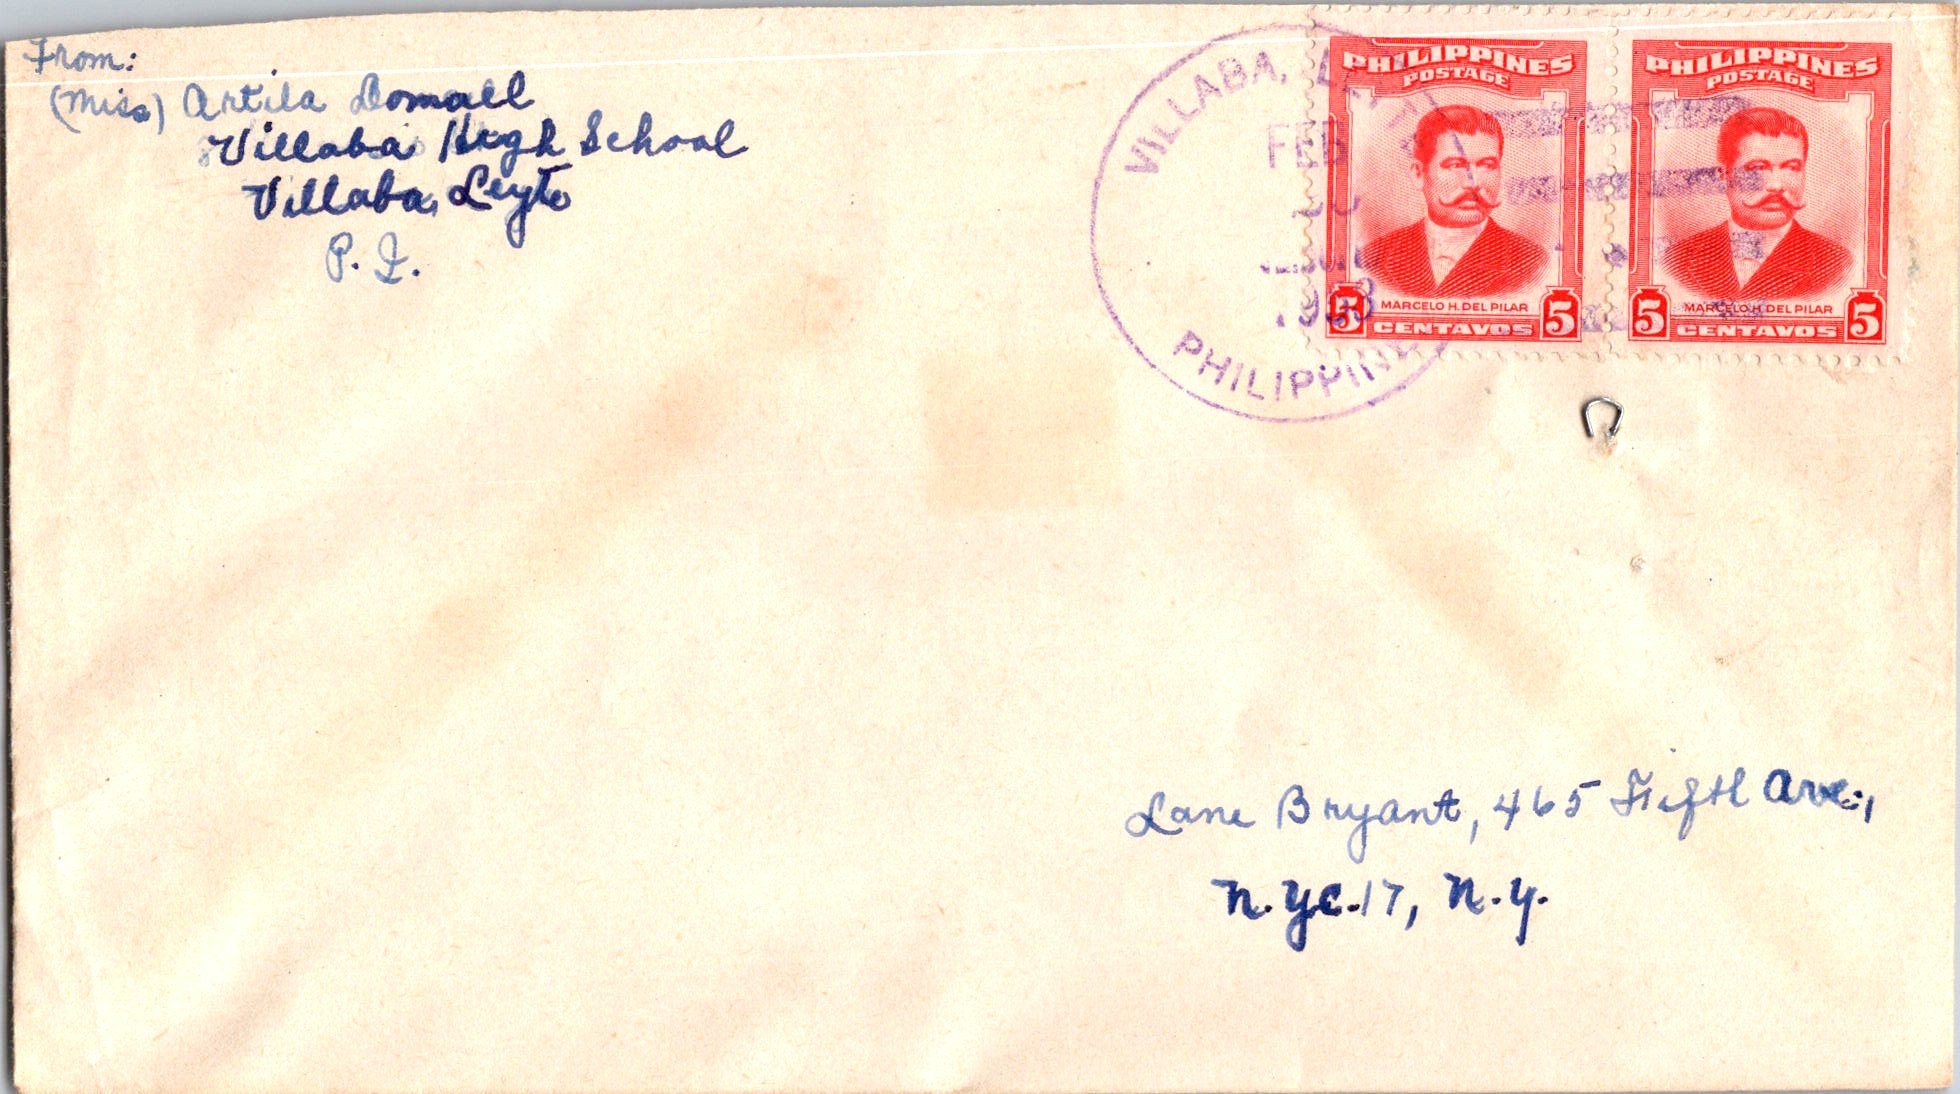 From:
(Miss) Artila Domael
Villaba High School
Villaba, Leyte
P. I.
VILLABA, LEYTE
FEB
1953
PHILIPPINES
PHILIPPINES
POSTAGE
MARCELO H. DEL PILAR
5 CENTAVOS 5
PHILIPPINES
POSTAGE
MARCELO H. DEL PILAR
5 CENTAVOS 5
Lane Bryant, 465 Fifth Ave.,
N.Y.C. 17, N.Y.